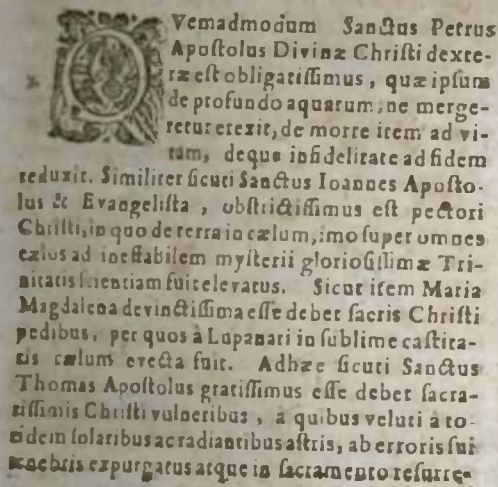 QVemadmodum Sanctus Petrus
Apoſtolus Divinæ Chriſti dexte-
ræ eſt obligatiſſimus, quæ ipſum
de profundo aquarum, ne merge-
retur erexit, de morte item ad vi-
tam, deque infidelitate ad fidem
reduxit. Similiter ſicuti Sanctus Ioannes Apoſto-
lus & Evangeliſta, obſtrictiſſimus eſt pectori
Chriſti, in quo de terra in cælum, imo ſuper omnes
cælos ad ineffabilem myſterii glorioſiſſimæ Tri-
nitatis ſcientiam fuit elevatus. Sicut item Maria
Magdalena devinctiſſima eſſe debet ſacris Chriſti
pedibus, per quos à Lupanari in ſublime caſtita-
tis cælum evecta fuit. Adhæc ſicuti Sanctus
Thomas Apoſtolus gratiſſimus eſſe debet ſacra-
tiſſimis Chriſti vulneribus, à quibus veluti à to-
tidem ſolaribus ac radiantibus aſtris, ab erroris ſui
tenebris expurgatus atque in ſacramento reſurre-